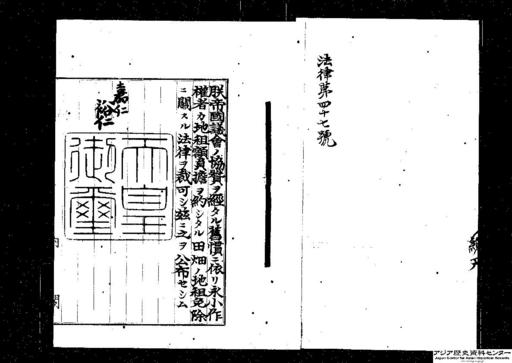 法律第四十七號
朕帝國議會ノ協賛ヲ經タル舊慣ニ依リ永小作
權者カ地租額負擔ヲ約シタル田畑ノ地租免除
ニ關スル法律ヲ裁可シ茲ニ之ヲ公布セシム
嘉仁
裕仁
天皇
御璽
内
閣
アジア歴史資料センター
Japan Center for Asian Historical Records